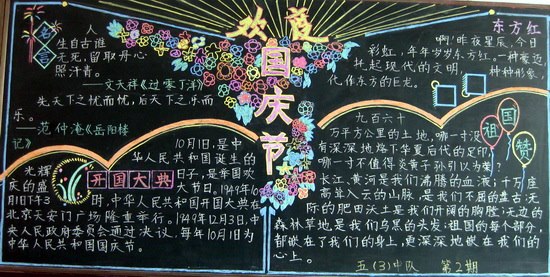 欢度
国庆节
名言
人
生自古谁
无死,留取丹心
照汗青。
——文天祥《过零丁洋》
先天下之忧而忧,后天下之乐而
乐。
——范仲淹《岳阳楼
记》
开国大典
10月1日,是中
华人民共和国诞生的
日子,是举国欢
庆的盛
大节日。1949年10
月1日下午3时,中华人民共和国开国大典在
北京天安门广场隆重举行。1949年12月3日,中
央人民政府委员会通过决议,每年10月1日为
中华人民共和国国庆节。
东方红
啊!昨夜星辰,今日
彩虹,年年岁岁东方红,一种豪迈,
托起现代的文明,种种形象,
化作东方的巨龙。
祖国赞
九百六十
万平方公里的土地,哪一寸没
有深深地烙下华夏后代的足印,
哪一寸不值得炎黄子孙引以为荣?
长江、黄河是我们沸腾的血液;十万座
高耸入云的山脉,是我们不屈的盘古;无
际的肥田沃土是我们开阔的胸膛;无边的
森林草地,是我们乌黑的头发;祖国的每个部分,
都嵌在了我们的身上,更深深地嵌在我们的
心上。
五(3)中队 第2期